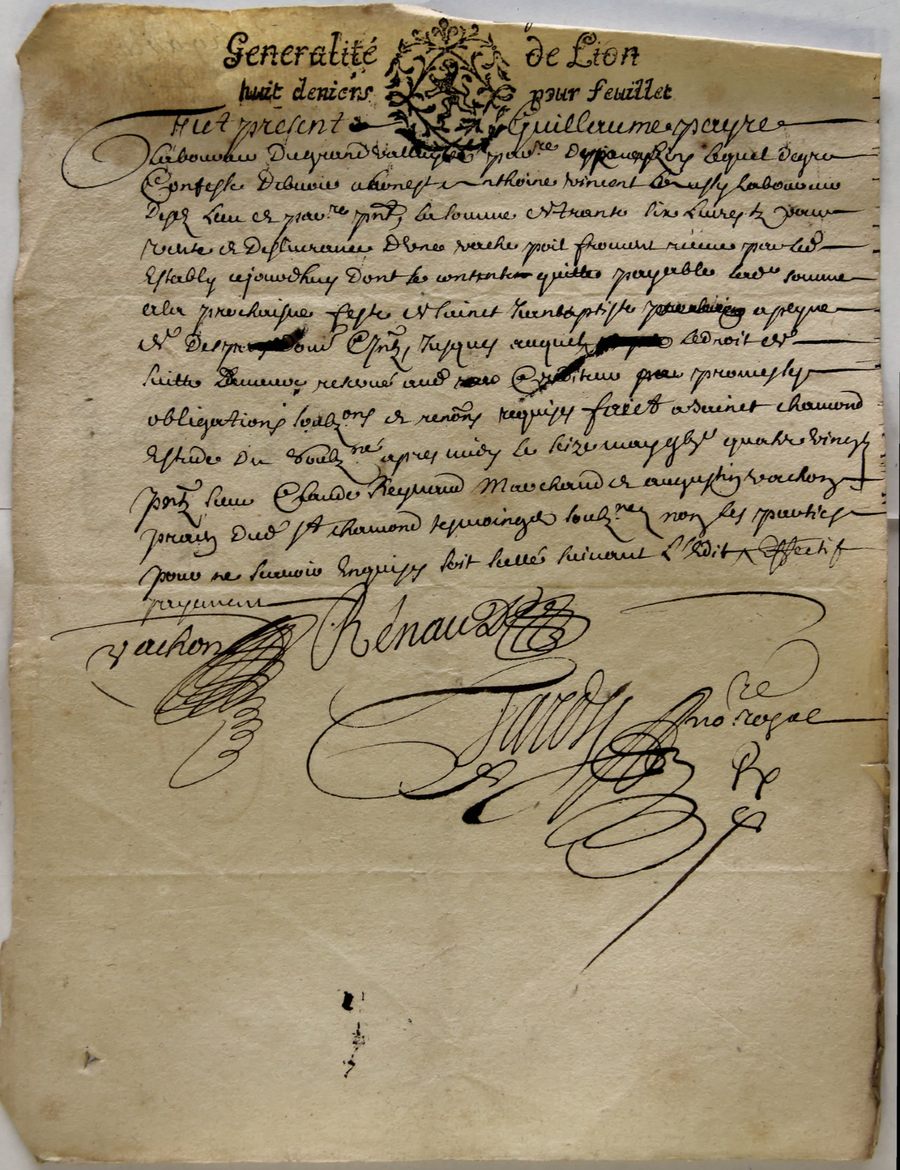 Generalité de Lion
huit deniers pour feuillet
Fut present Guillaume payre
laboureur du grand lequel de gre
Confesse debvoir a honeste Anthoine vincent laboureur
dud lieu et par.re pnt, la somme de trante six livres tz pour
vente et deslivrance d'une vache poil froment par led
estably cejourdhuy dont se contente quitte payable lad.e somme
a la prochaisne feste de sainct Jan baptiste a peyne
de Jusques auquel le droit de
suitte demeure reservé aud Crediteur promesses
obligations soubz.ons et renon.s requises faict a sainct chamond
estude du soubz.né apres midy le seize may quatre vingtz
pntz sieur Claude Reynaud Marchand et augustin vachon
dud St chamond tesmoingtz soubz.nez non les parties
pour ne scavoir enquises soit sellé suivant l'Edit effectif
payement
vachon Rénaud
Jardy no.re royal